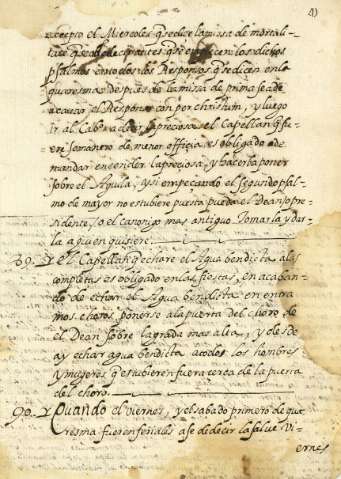 41
excepto el Miercoles q̃ se dice la missa de
tare
psalmos en todos los Responsos q̃ se dicen en la
quaresma despues de la missa de prima se a de
acavar el Responso con per christum, y luego
ir al Cabo a decir la preciosa, el Capellan q̃ fue
re semanero de menor officio, es obligado a
mandar encender la preciosa, y hacerla poner
sobre el Aguila, y si empecando el segundo psal
mo de mayor no estubiere puesta puede el Dean, o pre
sidente, o el canonigo mas antiguo tomarla y dar
la a quien quisiere.
89. El Capellan q̃ echare el Agua bendicta a las
completas es obligado en las fiestas, en acaban
do de echar el Agua bendicta en entra
mos choros, ponerse a la puerta del choro de
el Dean sobre la grada mas alta, y desde
ay echar agua bendicta a todos los hombres
y mujeres q̃ estubieren fuera cerca de la puerta
del choro.
90. Quando el viernes, y el sabado primero de qua
resma fueren feriales a se de decir la salue Vi
ernes